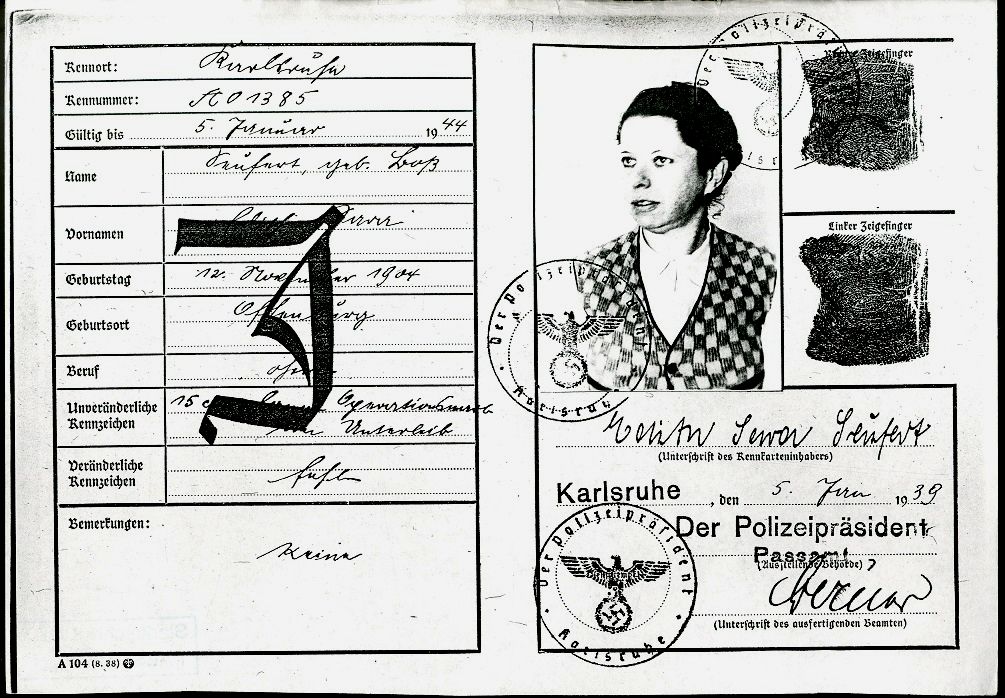 Kennort: Karlsruhe
Kennummer: A01385
Gültig bis 5. Januar 1944
Name Seufert, geb. Boß
Vornamen Sara
Geburtstag 12. November 1904
Geburtsort Offenburg
Beruf ohne
Unveränderliche Kennzeichen 15 Operationsnarbe
Unterleib
Veränderliche Kennzeichen fehlen
Bemerkungen:
Keine
J
A 104 (8. 38)
Der Polizeipräsident
Karlsruhe
Rechter Zeigefinger
Linker Zeigefinger
Der Polizeipräsident
Karlsruhe
Sara Seufert
(Unterschrift des Kennkarteninhabers)
Karlsruhe, den 5. Jan 1939
Der Polizeipräsident
Passamt
(Ausstellende Behörde)
(Unterschrift des ausfertigenden Beamten)
Der Polizeipräsident
Karlsruhe